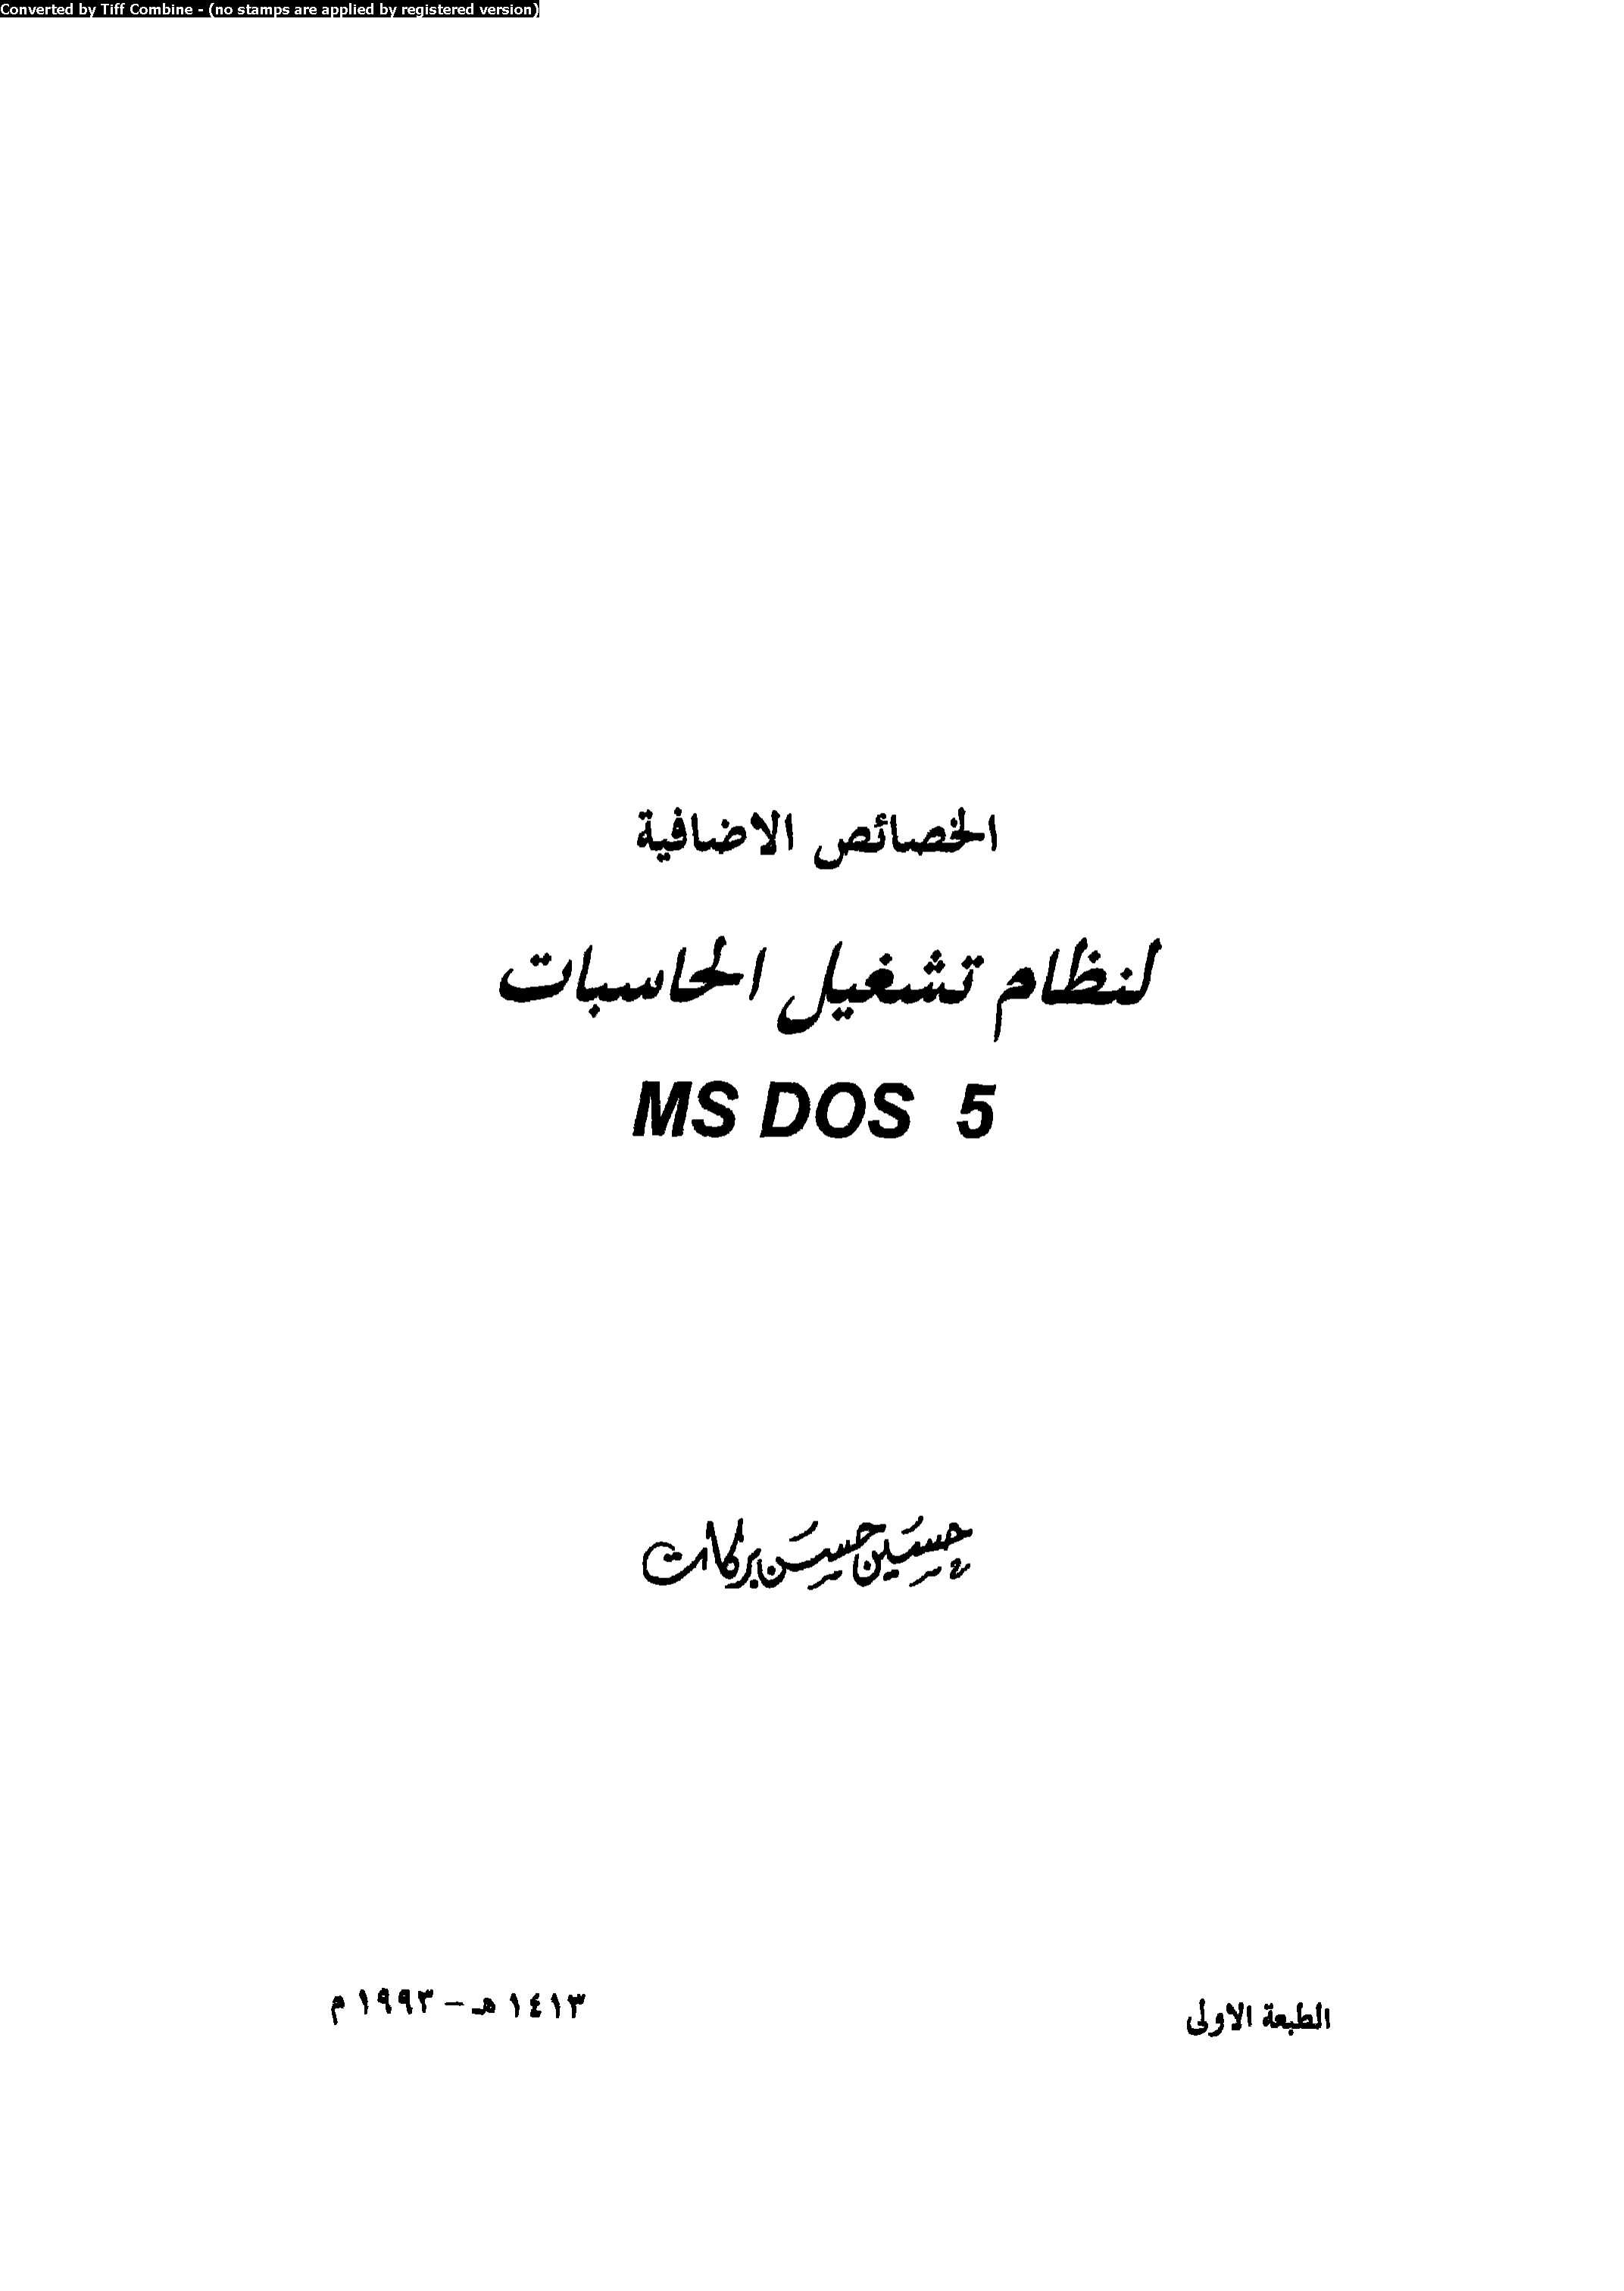 Converted by Tiff Combine - (no stamps are applied by registered version)
الخصائص الاضافية
لنظام تشغيل الحاسبات
MS DOS 5
حسين حسن بركات
الطبعة الاولى
١٤١٣ هـ – ١٩٩٣ م